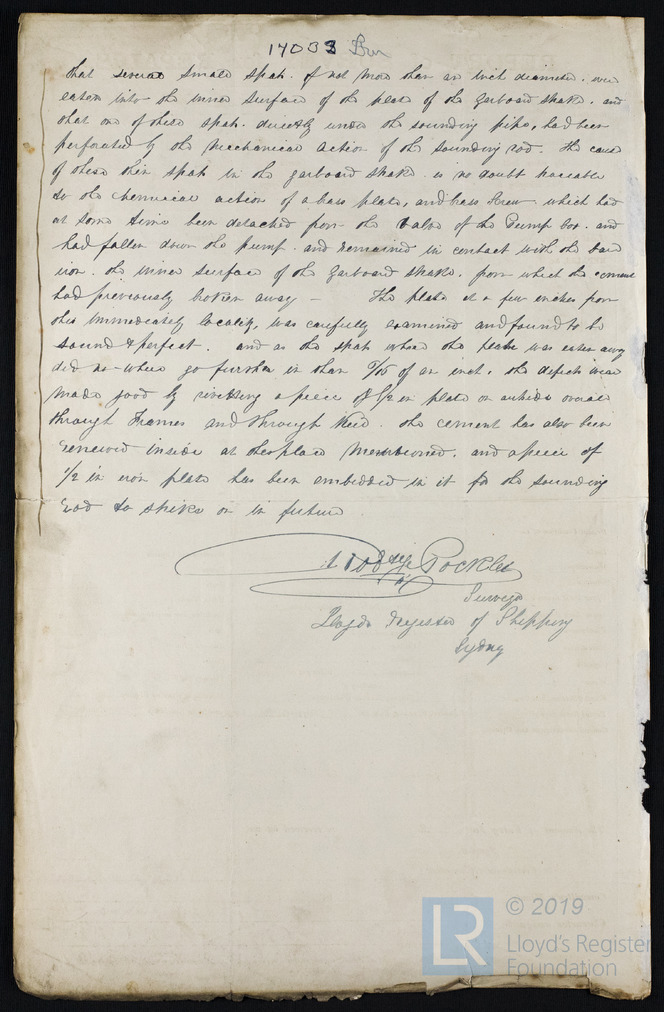 14003 Iron
that several small spots of not more than an inch diameter were
eaten into the inner surface of the plate of the garboard strake, and
that one of these spots directly under the sounding pipe, had been
perforated by the mechanical action of the sounding rod. The cause
of these thin spots in the garboard strake is no doubt traceable
to the chemical action of a brass plate, and brass screw which had
at some time been detached from the valve of the Pump box, and
had fallen down the pump and remained in contact with the bare
iron, the inner surface of the garboard strake, from which the cement
had previously broken away — The plate at a few inches from
this immediately locality, was carefully examined and found to be
sound & perfect. and as the spots where the plate was eaten away
did no where go further in than /16 of an inch, the defect was
made good by rivetting a piece of 1/2 in plate on outside
through Frames and through Keel. the cement has also been
renewed inside at the place mentioned, and a piece of
1/2 in iron plate has been embedded in it for the sounding
rod to strike on in future
Pockley
Surveyor
Lloyds Register of Shipping
Sydney
© 2019
LR
Lloyd's Register
Foundation